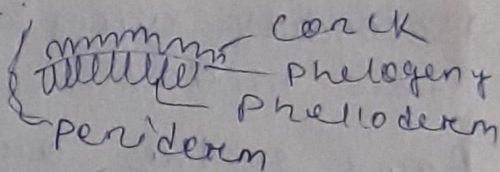 conck
Phelogeny
Phelloderm
Periderm